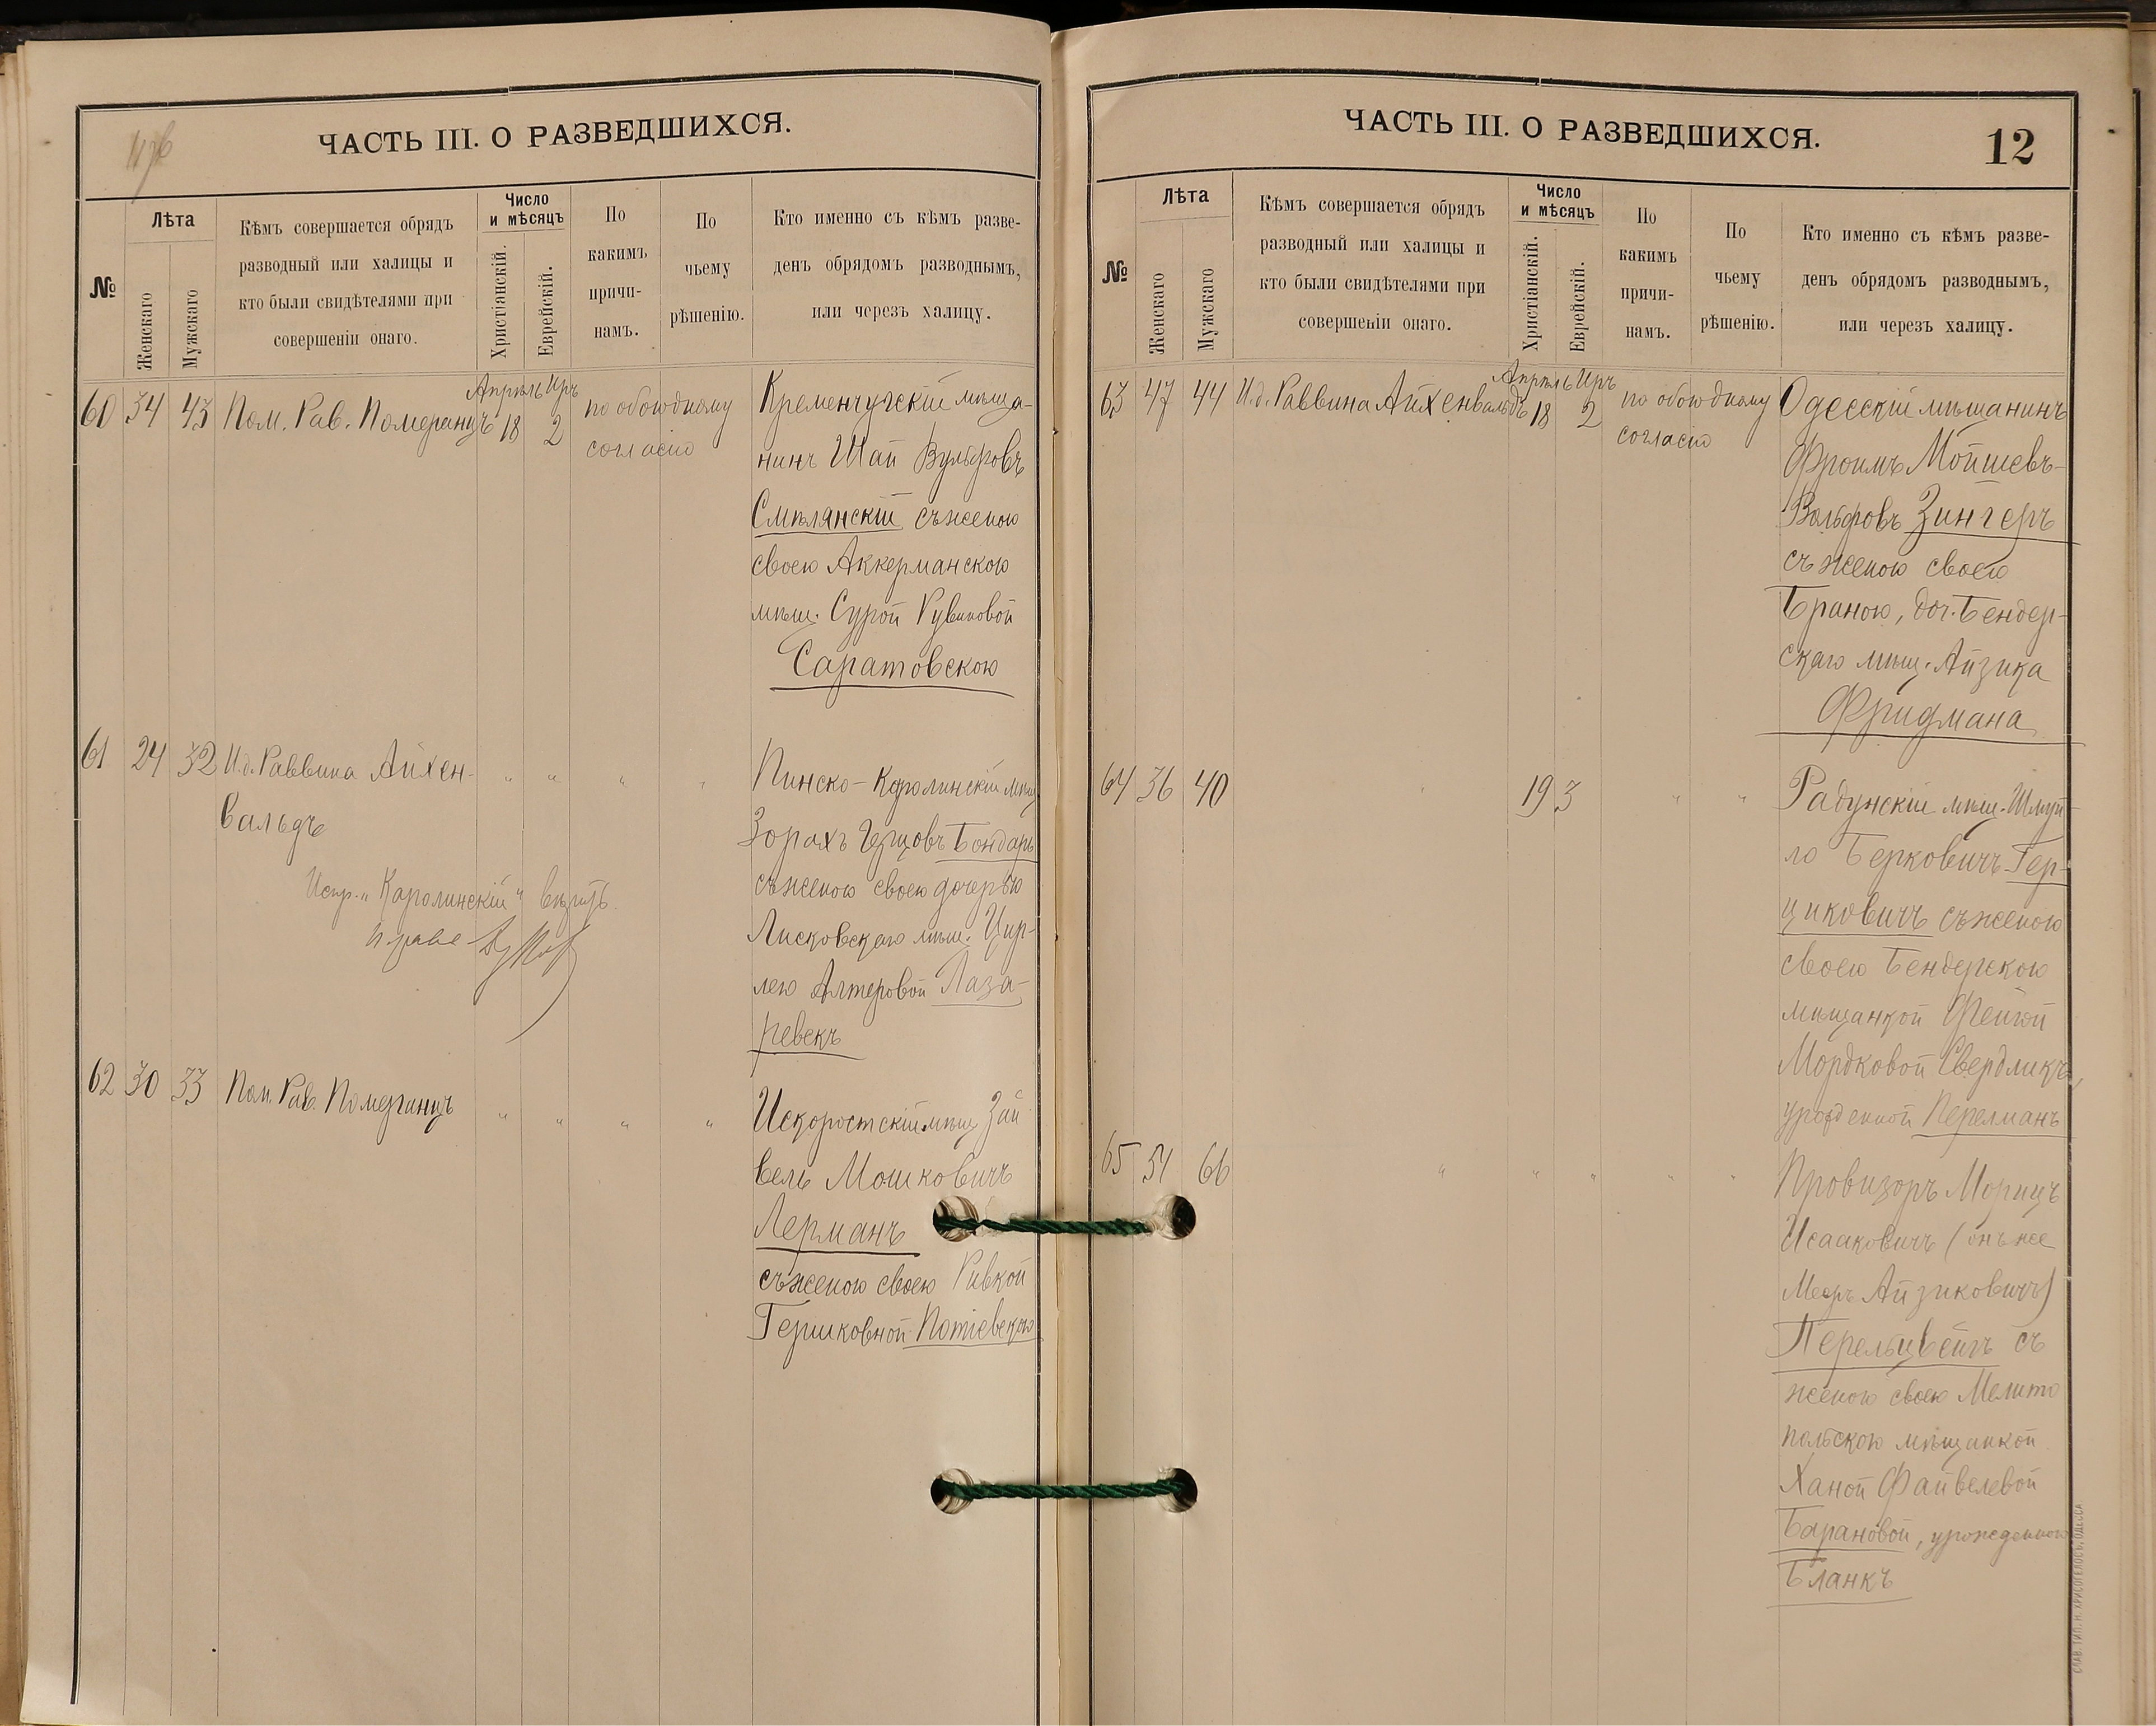 ЧАСТЬ III. О РАЗВЕДШИХСЯ.
№
Лѣта
Женскаго
Мужскаго
Кѣмъ совершается обрядъ
разводный или халицы и
кто были свидѣтелями при
совершеніи онаго.
Число
и мѣсяцъ
Христіанскій.
Еврейскій.
По
какимъ
причи-
намъ.
По
чьему
рѣшенію.
Кто именно съ кѣмъ разве-
денъ обрядомъ разводнымъ,
или черезъ халицу.
Апрѣль Иръ
60 34 43 Пом. Рав. Померанцъ 18 2 по обоюдному
согласію
Кременчугскій мѣща-
нинъ Шая Вульфовъ
Смѣлянскій съ женою
своею Аккерманскою
мѣщ. Сурой Рувиновой
Саратовскою
61 24 32 И.д. Раввина Айхен-
вальдъ
" " " "
Пинско-Каролинскій мѣщ
Зорахъ Герцовъ Бондарь
съ женою своею дочерью
Лисковскаго мѣщ. Цир-
лею Алтеровой Лаза-
ревекъ
Испр. "Каролинскій" вѣрить
62 30 33 Пом. Рав. Померанцъ " " " "
Искоростскій мѣщ Зай
вель Мошковичъ
Лерманъ
съ женою своею Ривкой
Гершковной Потіевскою
ЧАСТЬ III. О РАЗВЕДШИХСЯ.
12
№
Лѣта
Женскаго
Мужскаго
Кѣмъ совершается обрядъ
разводный или халицы и
кто были свидѣтелями при
совершеніи онаго.
Число
и мѣсяцъ
Христіанскій.
Еврейскій.
По
какимъ
причи-
намъ.
По
чьему
рѣшенію.
Кто именно съ кѣмъ разве-
денъ обрядомъ разводнымъ,
или черезъ халицу.
Апрѣль Иръ
63 47 44 И.д. Раввина Айхенвальдъ 18 2 по обоюдному
согласію
Одесскій мѣщанинъ
Фроимъ Мойшевъ-
Вольфовъ Зингеръ
съ женою своею
Браною, доч. Бендер-
скаго мѣщ. Айзика
Фридмана
64 36 40 " 19 3 " "
Радунскій мѣщ. Шмуй-
ло Берковичъ Гер-
циковичъ съ женою
своею Бендерскою
мѣщанкой Фейгой
Мордковой Свердликъ,
урожденной Перелманъ
65 51 66 " " " " "
Провизоръ Морицъ
Исааковичъ (онъ же
Мееръ Айзиковичъ)
Перельцвейгъ съ
женою своею Мелито
польскою мѣщанкой
Ханой Файвелевой
Барановой, урожденною
Бланкъ
СЛАВ. ТИП. Н. ХРИСОГЕЛОСЪ, ОДЕССА